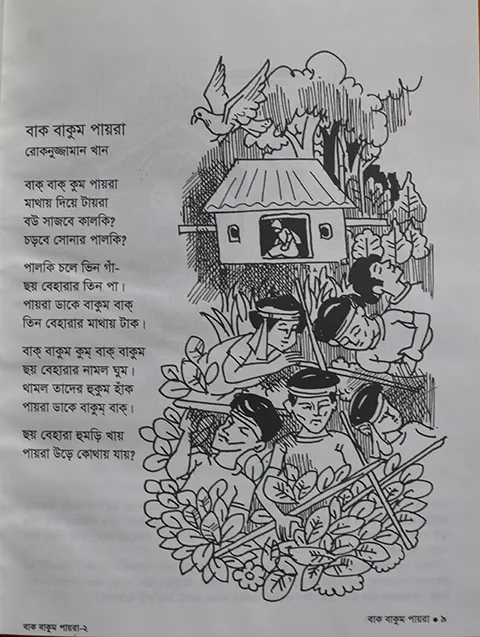 বাক বাকুম পায়রা
রোকনুজ্জামান খান
বাক্ বাক্ কুম পায়রা
মাথায় দিয়ে টায়রা
বউ সাজবে কালকি?
চড়বে সোনার পালকি?
পালকি চলে ভিন গাঁ-
ছয় বেহারার তিন পা।
পায়রা ডাকে বাকুম বাক্
তিন বেহারার মাথায় টাক।
বাক্ বাকুম কুম্ বাক্ বাকুম
ছয় বেহারার নামল ঘুম।
থামল তাদের হুকুম হাঁক
পায়রা ডাকে বাকুম্ বাক্।
ছয় বেহারা হুমড়ি খায়
পায়রা উড়ে কোথায় যায়?
বাক বাকুম পায়রা-২
বাক বাকুম পায়রা ● ৯